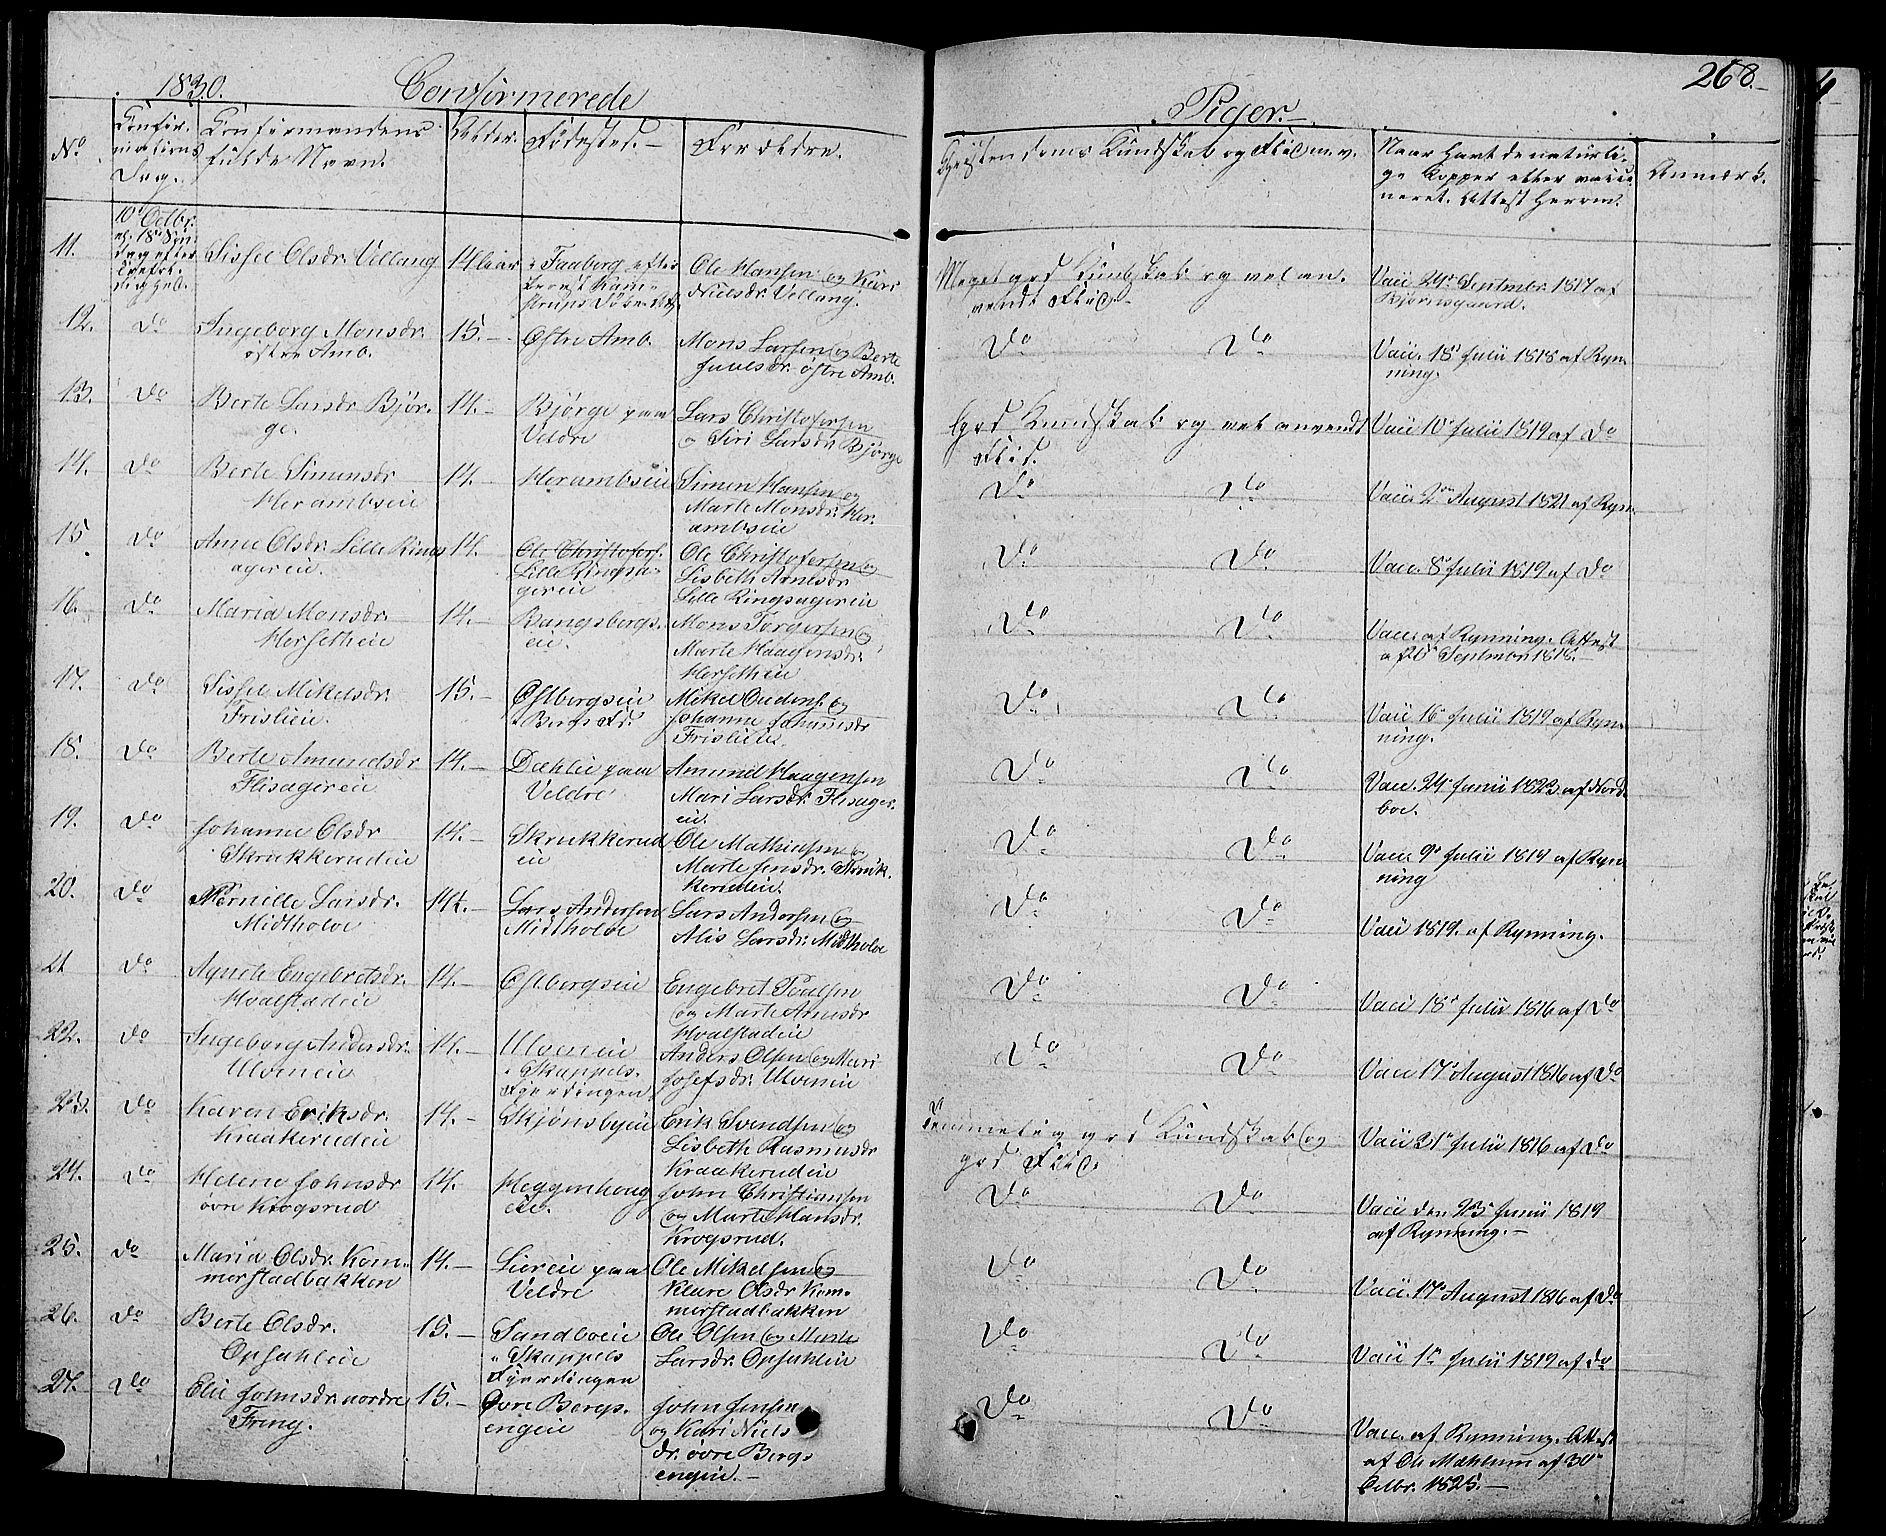 1830. Confirmerede
Piger.
268.
No
Confir-
mations
Dag.
Confirmandens
fulde Navn.
Alder.
Fødested.
Forældre.
Christendoms Kundskab og Flid m.v.
Naar havt de naturli-
ge Kopper eller vacci-
neret. Attest herom.
Anmærk.
11.
10de Octbr.
18de Søn-
dag efter
Sissel Olsdr. Vellang
14
Faaborg
Ole Hansen og Kari
Nielsdr. Vellang.
Meget god Kundskab og vel an-
vendt Flid.
Vacc. 29de Septmbr. 1817 af
Bjørnsgaard.
12. Do Ingeborg Monsdr.
østre Amb.
15.
Østre Amb.
Mons Larsen og Berte
Juulsdr. østre Amb.
Do Do
Vacc. 18de Julii 1818 af Ryn-
ning.
13. Do Berte Larsdr. Bjør-
ge.
14.
Bjørge paa
Veldre
Lars Christofersen
og Siri Larsdr. Bjørge
God Kundskab og vel anvendt
Flid.
Vacc 10de Julii 1819 af Do
14. Do Berte Simensdr.
Herambseie
14.
Herambseie
Simen Hansen og
Marte Monsdr. Her-
ambseie
Do Do
Vacc. 2den August 1821 af Ryn.
15. Do Anne Olsdr. Lille Rings
agereie.
14.
Ole Christofers.
Lille Ringsa-
gereie
Ole Christofersen og
Lisbeth Arnesdr.
Lille Ringsagereie
Do Do
Vacc. 8de Julii 1819 af Do
16. Do Maria Monsdr.
Hersetheie
14.
Bangsbergs-
eie.
Mons Torgersen og
Marte Haagensdr.
Hersetheie
Do Do
Vacc. af Rynning. Attest
af 20de Septmbr 1818.
17. Do Sissel Mikelsdr.
Frislieie.
15.
Østbergseie
Mikel Gudens. og
Johanne Johannsdr
Frislieie.
Do Do
Vacc 16de Julii 1819 af Ryn-
ning.
18. Do Berte Amundsdr
Flisagereie
14.
Dæhlie paa
Veldre
Amund Haagensen
Mari Larsdr. Flisager-
eie.
Do Do
Vacc. 24de Junii 1823 af Nord-
boe.
19. Do Johanne Olsdr
Skrukkerudeie
14.
Skrukkerud
eie
Ole Mathiasen og
Marte Jensdr. Skruk-
kerudeie.
Do Do
Vacc. 9de Julii 1819 af Ryn-
ning
20. Do Pernille Larsdr.
Midtholoe
14.
Lars Andersen
Midtholoe
Lars Andersen og
Alis Larsdr. Midtholoe
Do Do
Vacc 1819. af Rynning.
21 Do Agnete Engebretsdr.
Hvalstadeie
14.
Østbergseie
Engebret Poulsen
og Marte Arnesdr
Hvalstadeie
Do Do
Vacc 18de Julii 1816 af Do
22. Do Ingeborg Andersdr.
Ulveneie
14.
Ulveneie
Skappels-
Fjerdingen
Anders Olsen og Mari
Josefsdr. Ulveneie
Do Do
Vacc 17de August 1816 af Do
23. Do Karen Eriksdr.
Kraakerudeie
14.
Skjønsbyeie
Erik Svendsen og
Lisbeth Rasmusdr
Kraakerudeie
Temmelig god Kundskab og
god Flid.
Vacc 31te Julii 1816 af Do
24. Do Helene Johnsdr
øvre Krogsrud
14.
Heggenhoug
eie.
John Christiansen
og Marte Hansdr.
Krogsrud.
Do Do
Vacc den 23de Junii 1819
af Rynning.
25. Do Maria Olsdr. Kom-
merstadbakken
14.
Liereie paa
Veldre
Ole Mikelsen og
Klare Olsdr. Kom-
merstadbakken
Do Do
Vacc. 17de August 1816 af Do
26. Do Berte Olsdr.
Opsahleie
15.
Sandboeie
Skappels
Fjerdingen
Ole Olsen og Marte
Larsdr. Opsahleie
Do Do
Vacc 1te Julii 1819 af Do
27. Do Elie Johnsdr. nordre
Fring.
15.
Øvre Bergs-
engeie
John Jensen
og Kari Niels
dr. øvre Bergs-
engeie.
Do Do
Vacc. af Rynning. Attest
af Ole Mæhlum af 30te
Octbr. 1825.